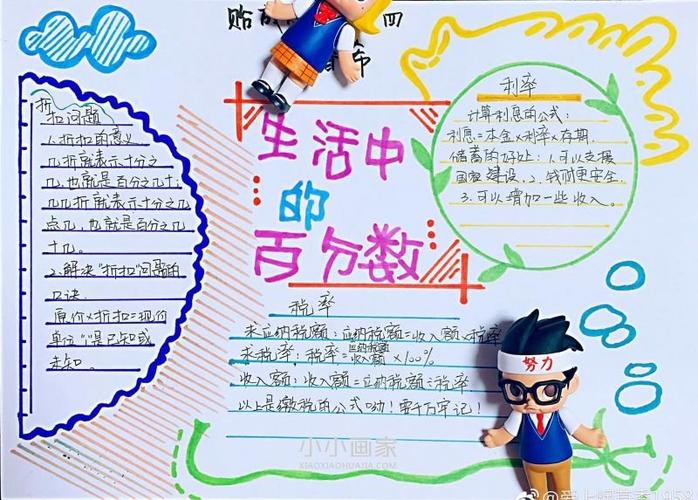 四
生活中
的
百分数
折
扣问题
1.折扣的意义
几折就表示十分之
几,也就是百分之几十;
几几折就表示十分之几
点几,也就是百分之几
十几。
2.解决"折扣"问题的
口诀
原价×折扣=现价
单位"1"是已知或
未知。
利率
计算利息的公式:
利息=本金×利率×存期.
储蓄的好处:1.可以支援
国家建设、2.钱财更安全.
3.可以增加一些收入。
税率
求应纳税额:应纳税额=收入额×税率
求税率:税率=应纳税额/收入额×100%
收入额:收入额=应纳税额÷税率
以上是缴税的公式呦!要千万牢记!
努力
小小画家
XIAOXIAOHUAJIA.COM